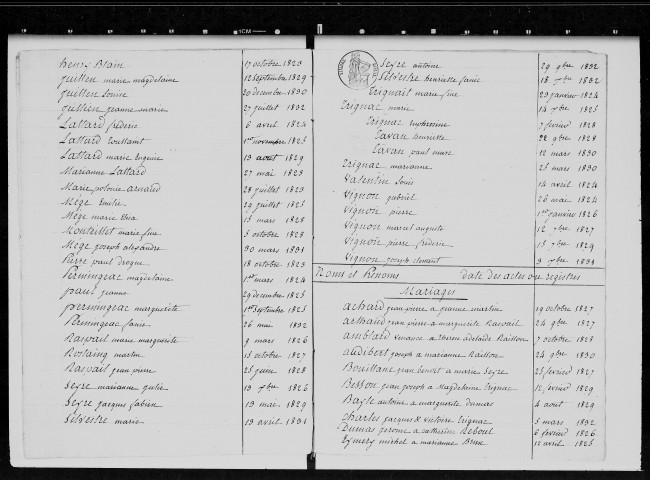 henry Blain 17 octobre 1823
Jullien marie magdelaine 12 septembre 1829
Jullien Louise 20 decembre 1830
Jullien jeanne marie 27 juillet 1832
Lattard frederic 6 avril 1824
Lattard Toussaint 1er novembre 1825
Lattard marie Eugenie 13 aout 1829
Marianne Lattard 27 mai 1823
Marie polonie arnaud 28 juillet 1823
Mege Emilie 29 juillet 1825
Mege marie Elisa 15 mars 1828
Monteillet marie fine 5 octobre 1828
Mege joseph alexandre 30 mars 1831
Pierre paul Drogue 18 octobre 1823
Permingeac magdelaine 1er mars 1824
paul jeanne 29 decembre 1825
permingeac marguerite 1er septembre 1825
Permingeac fanie 26 mai 1832
Raspail marie marguerite 9 mars 1826
Rostaing martin 15 octobre 1827
Raspail jean pierre 25 juin 1828
Seyre marianne julie 19 xbre 1826
Seyre jacques fabien 19 mai 1829
Silvestre marie 19 avril 1831
Seyre antoine 29 9bre 1832
Silvestre henriette fanie 18 xbre 1832
Trignait marie fine 29 janvier 1824
Trignac marie 14 xbre 1825
Trignac euphrosine 7 fevrier 1828
Tavan henriette 22 9bre 1828
Tavan paul marc 12 mars 1830
Trignac marianne 25 mars 1830
Valentin Louis 14 avril 1824
Vignon gabriel 26 mai 1824
Vignon pierre 1er janvier 1826
Vignon marcel auguste 12 xbre 1827
Vignon pierre frederic 15 xbre 1829
Vignon joseph clement 9 xbre 1832
Noms et Prénoms date des actes ou registres
Mariages
achard jean pierre a jeanne martin 19 octobre 1827
arthaud jean pierre a marguerite Raspail 24 9bre 1827
amblard Venance a therese adelaide Raillon 7 octobre 1828
audibert joseph a marianne Raillon 24 9bre 1830
Bouillane jean benoit a marie Seyre 25 fevrier 1827
Besson jean joseph a Magdelaine Trignac 12 fevrier 1829
Bayle antoine a marguerite Dumas 4 aout 1829
Charles jacques a victoire Trignac 5 mars 1832
Dumas jerome a catherine Reboul 6 fevrier 1826
Eymery michel a marianne 12 avril 1825